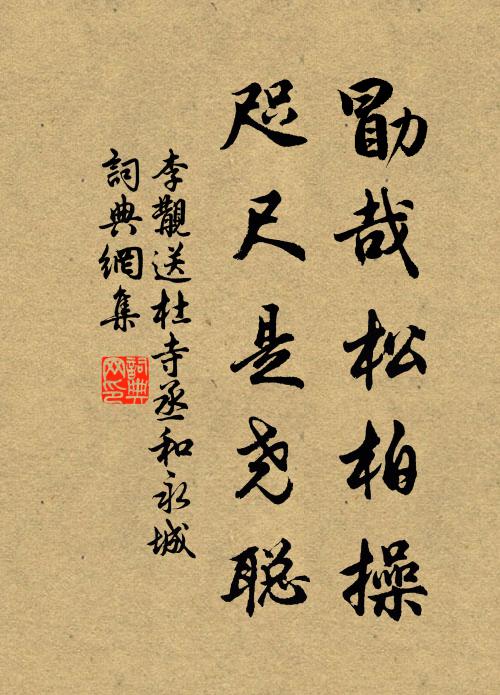 勖哉松柏操
咫尺是尧聪
李觀送杜寺丞和永城
詞典網集
詞典網印